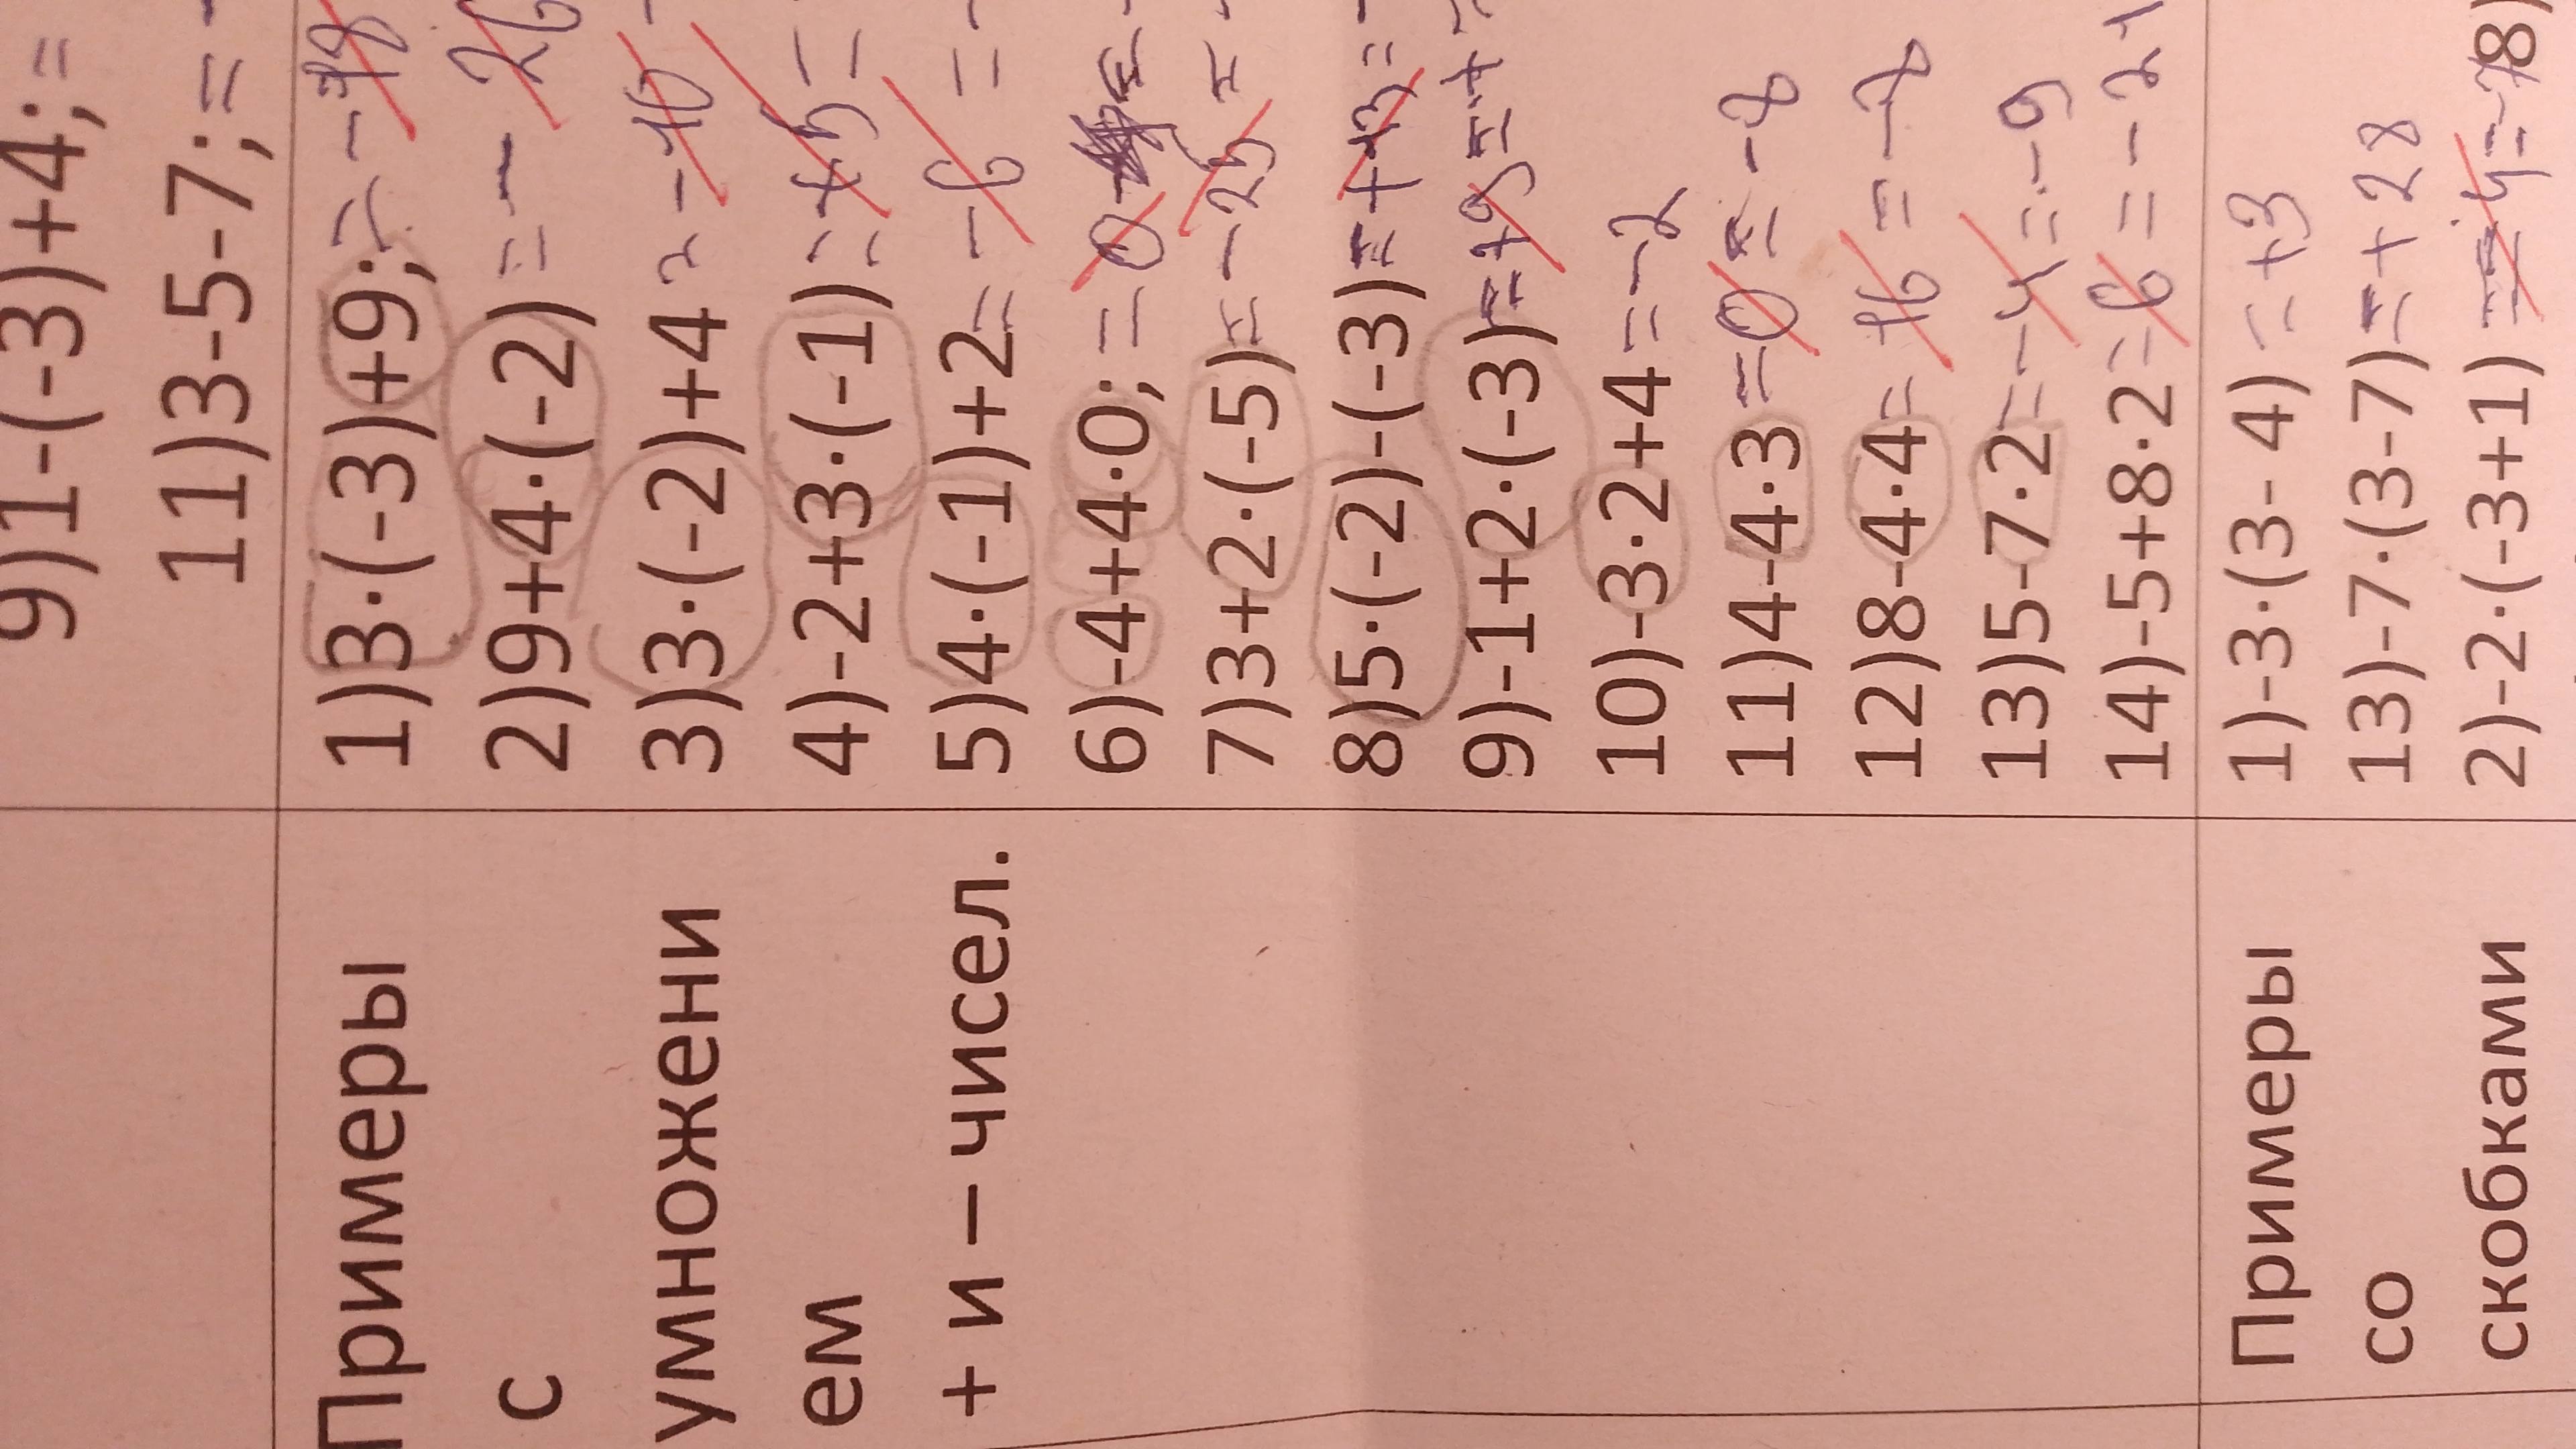 9)1-(-3)+4;=
11)3-5-7;=
Примеры
с
умножени
ем
+ и – чисел.
1)3·(-3)+9;
2)9+4·(-2)=-
3)3·(-2)+4
4)-2+3·(-1)=+5=
5)4·(-1)+2=-6=-
6)-4+4·0;=0
7)3+2·(-5)=-25=
8)5·(-2)-(-3)=+13=
9)-1+2·(-3)=+9=+
10)-3·2+4=-2
11)4-4·3=0=-8
12)8-4·4=16=
13)5-7·2=-4=-9
14)-5+8·2=6=-21
Примеры
со
скобками
1)-3·(3- 4)=+3
13)-7·(3-7)=+28
2)-2·(-3+1)
8)